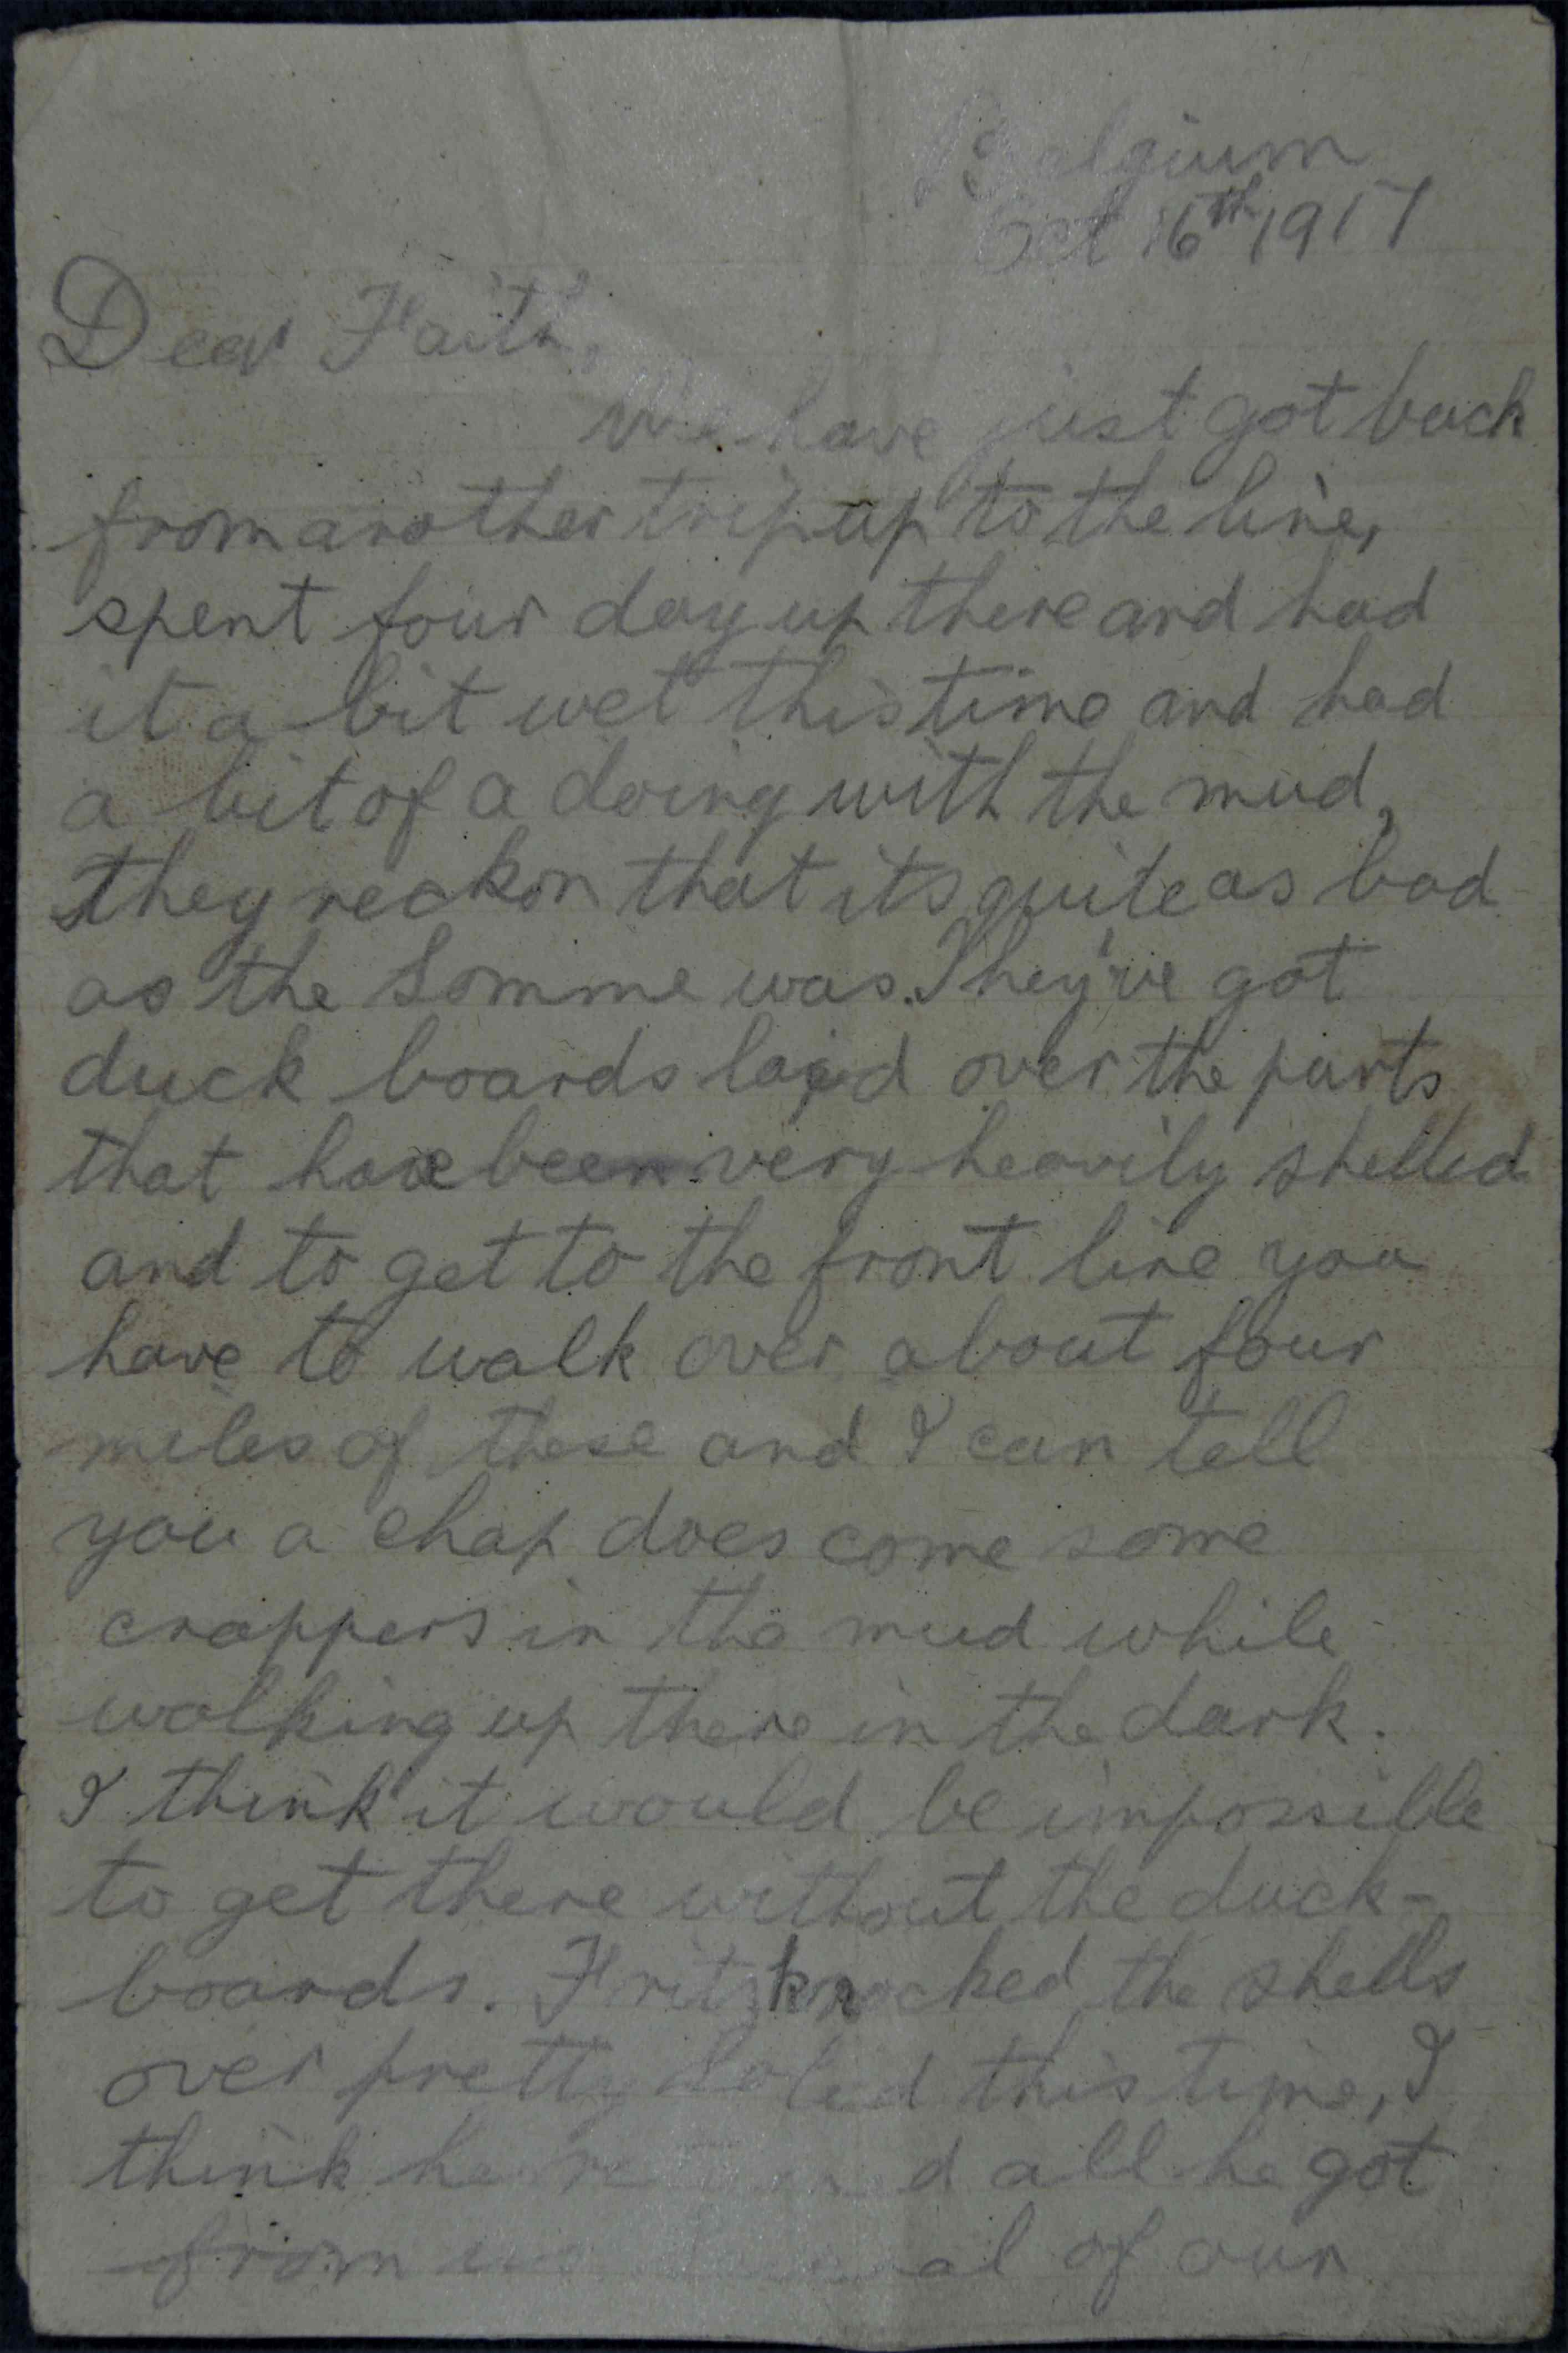 Belgium
Oct 16th 1917
Dear Faith,
We have just got back
from another trip up to the line,
spent four day up there and had
it a bit wet this time and had
a bit of a doing with the mud,
they reckon that its quite as bad
as the Somme was. They've got
duck boards laid over the parts
that have been very heavily shelled
and to get to the front line you
have to walk over about four
miles of these and I can tell
you a chap does come some
crappers in the mud while
walking up there in the dark.
I think it would be impossible
to get there without the duck-
boards. Fritz knocked the shells
over pretty solid this time, I
think he all he got
from of our